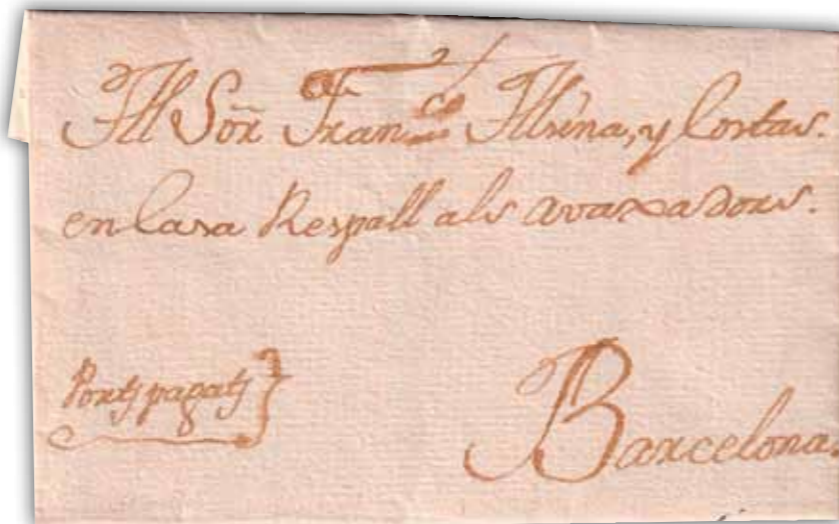 Ill Soñ Fran.co Illsina, y Cortas.
en Casa Respall als avaxadors.
Ports pagats
Barcelona.